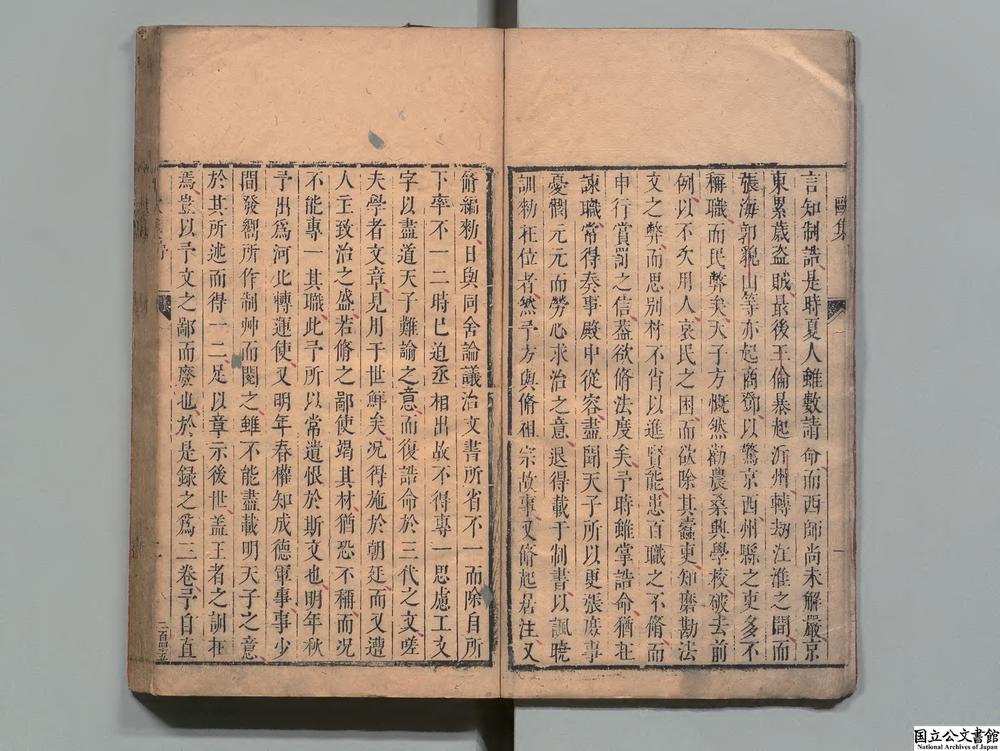 歐集
言知制誥是時夏人雖數請命而西師尚未解嚴京
東累歲盗賊最後王倫暴起沂州轉刼江淮之間而
張海郭貌山等亦起商鄧以驚京西州縣之吏多不
稱職而民弊矣天子方慨然勸農桑興學校破去前
例以不次用人哀民之困而欲除其蠹吏知磨勘法
文之弊而思别材不肖以進賢能患百職之不脩而
申行賞罰之信葢欲脩法度矣予時雖掌誥命猶在
諫職常得奏事殿中從容盡聞天子所以更張庶事
憂憫元元而勞心求治之意退得載于制書以諷曉
訓勑在位者然予方與脩祖宗故事又脩起居注又
脩編勑日與同舍論議治文書所省不一而除目所
下率不一二時已迫丞相出故不得專一思慮工文
字以盡道天子難諭之意而復誥命於三代之文嗟
夫學者文章見用于世鮮矣况得施於朝廷而又遭
人主致治之盛若脩之鄙使竭其材猶恐不稱而况
不能專一其職此予所以常遺恨於斯文也明年秋
予出爲河北轉運使又明年春權知成德軍事事少
間發嚮所作制艸而閱之雖不能盡載明天子之意
於其所述而得一二足以章示後世盖王者之訓在
焉豈以予文之鄙而廢也於是録之爲三卷予自直
二百四十五
国立公文書館
National Archives of Japan